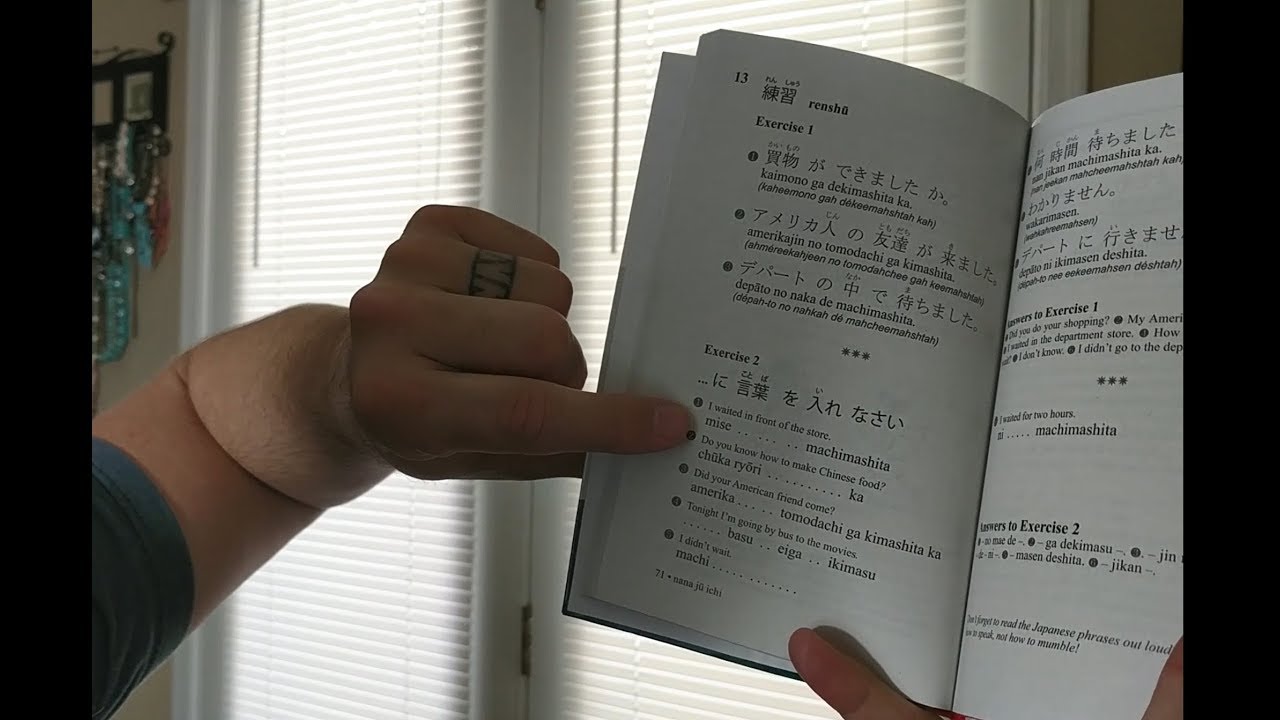 13
れん しゅう
練習 renshū
Exercise 1
かい もの
❶ 買物 が できました か。
kaimono ga dekimashita ka.
(kaheemono gah dékeemahshtah kah)
じん とも だち き
❷ アメリカ人 の 友達 が 来ました。
amerikajin no tomodachi ga kimashita.
(ahméreekahjeen no tomodahchee gah keemahshtah)
なか ま
❸ デパート の 中 で 待ちました。
depāto no naka de machimashita.
(dépah-to no nahkah dé mahcheemahshtah)
***
Exercise 2
こと ば い
... に 言葉 を 入れ なさい
❶ I waited in front of the store.
mise . . . . . . . machimashita
❷ Do you know how to make Chinese food?
chūka ryōri . . . . . . . . . . . ka
❸ Did your American friend come?
amerika . . . . . tomodachi ga kimashita ka
❹ Tonight I'm going by bus to the movies.
. . . . . . . basu . . eiga . . ikimasu
❺ I didn't wait.
machi . . . . . . . . . . . . .
71 • nana jū ichi
じ かん ま
時間 待ちました
jikan machimashita ka.
jeekan mahcheemahshtah kah)
わかりません。
wakarimasen.
(wahkahreemahsen)
デパート に 行きませ
depāto ni ikimasen deshita.
(dépah-to nee eekeemahsen déshtah)
Answers to Exercise 1
Did you do your shopping? ❷ My Ameri
I waited in the department store. ❹ How
❺ I don't know. ❻ I didn't go to the dep
***
I waited for two hours.
ni . . . . . machimashita
Answers to Exercise 2
❶ - no mae de –. ❷ – ga dekimasu –. ❸. – jin
de – ni –. ❺ – masen deshita. ❻ – jikan –.
Don't forget to read the Japanese phrases out loud
how to speak, not how to mumble!